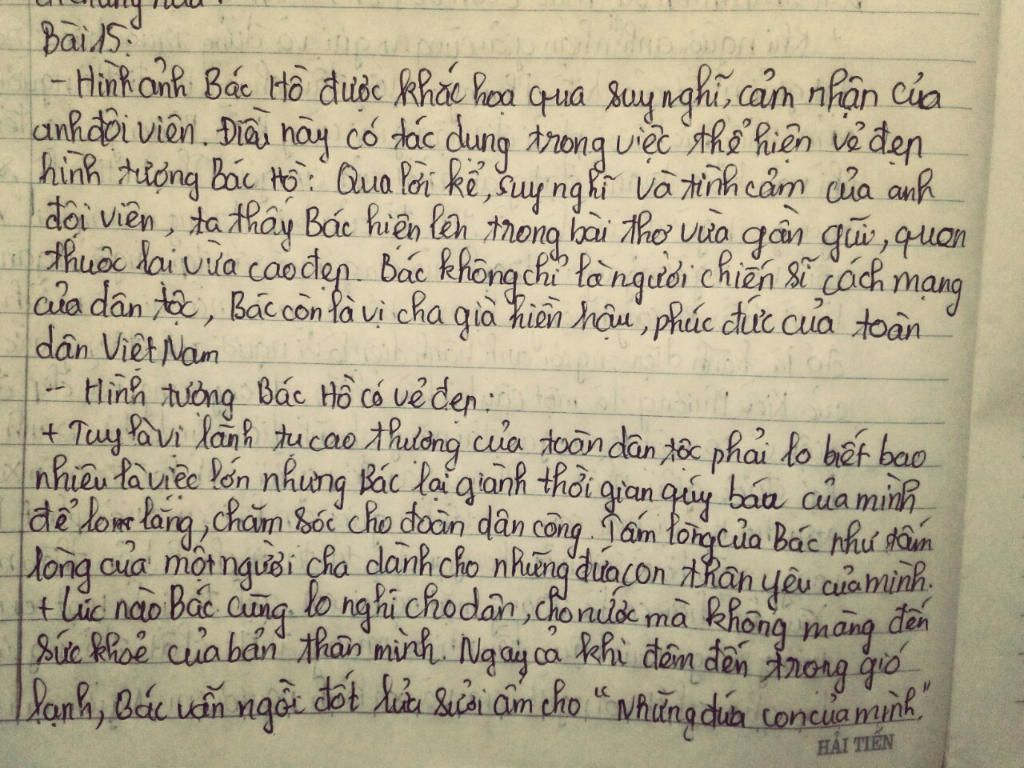 Bài 15:
- Hình ảnh Bác Hồ được khắc hoạ qua suy nghĩ, cảm nhận của
anh đội viên. Điều này có tác dụng trong việc thể hiện vẻ đẹp
hình tượng Bác Hồ: Qua lời kể, suy nghĩ và tình cảm của anh
đội viên, ta thấy Bác hiện lên trong bài thơ vừa gần gũi, quen
thuộc lại vừa cao đẹp. Bác không chỉ là người chiến sĩ cách mạng
của dân tộc, Bác còn là vị cha già hiền hậu, phúc đức của toàn
dân Việt Nam
- Hình tượng Bác Hồ có vẻ đẹp:
+ Tuy là vị lãnh tụ cao thượng của toàn dân tộc phải lo biết bao
nhiêu là việc lớn nhưng Bác lại giành thời gian qúy báu của mình
để lo lắng, chăm sóc cho đoàn dân công. Tấm lòng của Bác như tấm
lòng của một người cha dành cho những đứa con thân yêu của mình.
+ Lúc nào Bác cũng lo nghĩ cho dân, cho nước mà không màng đến
sức khoẻ của bản thân mình. Ngay cả khi đêm đến trong gió
lạnh, Bác vẫn ngồi đốt lửa sưởi ấm cho "Những đứa con của mình."
HẢI TIẾN